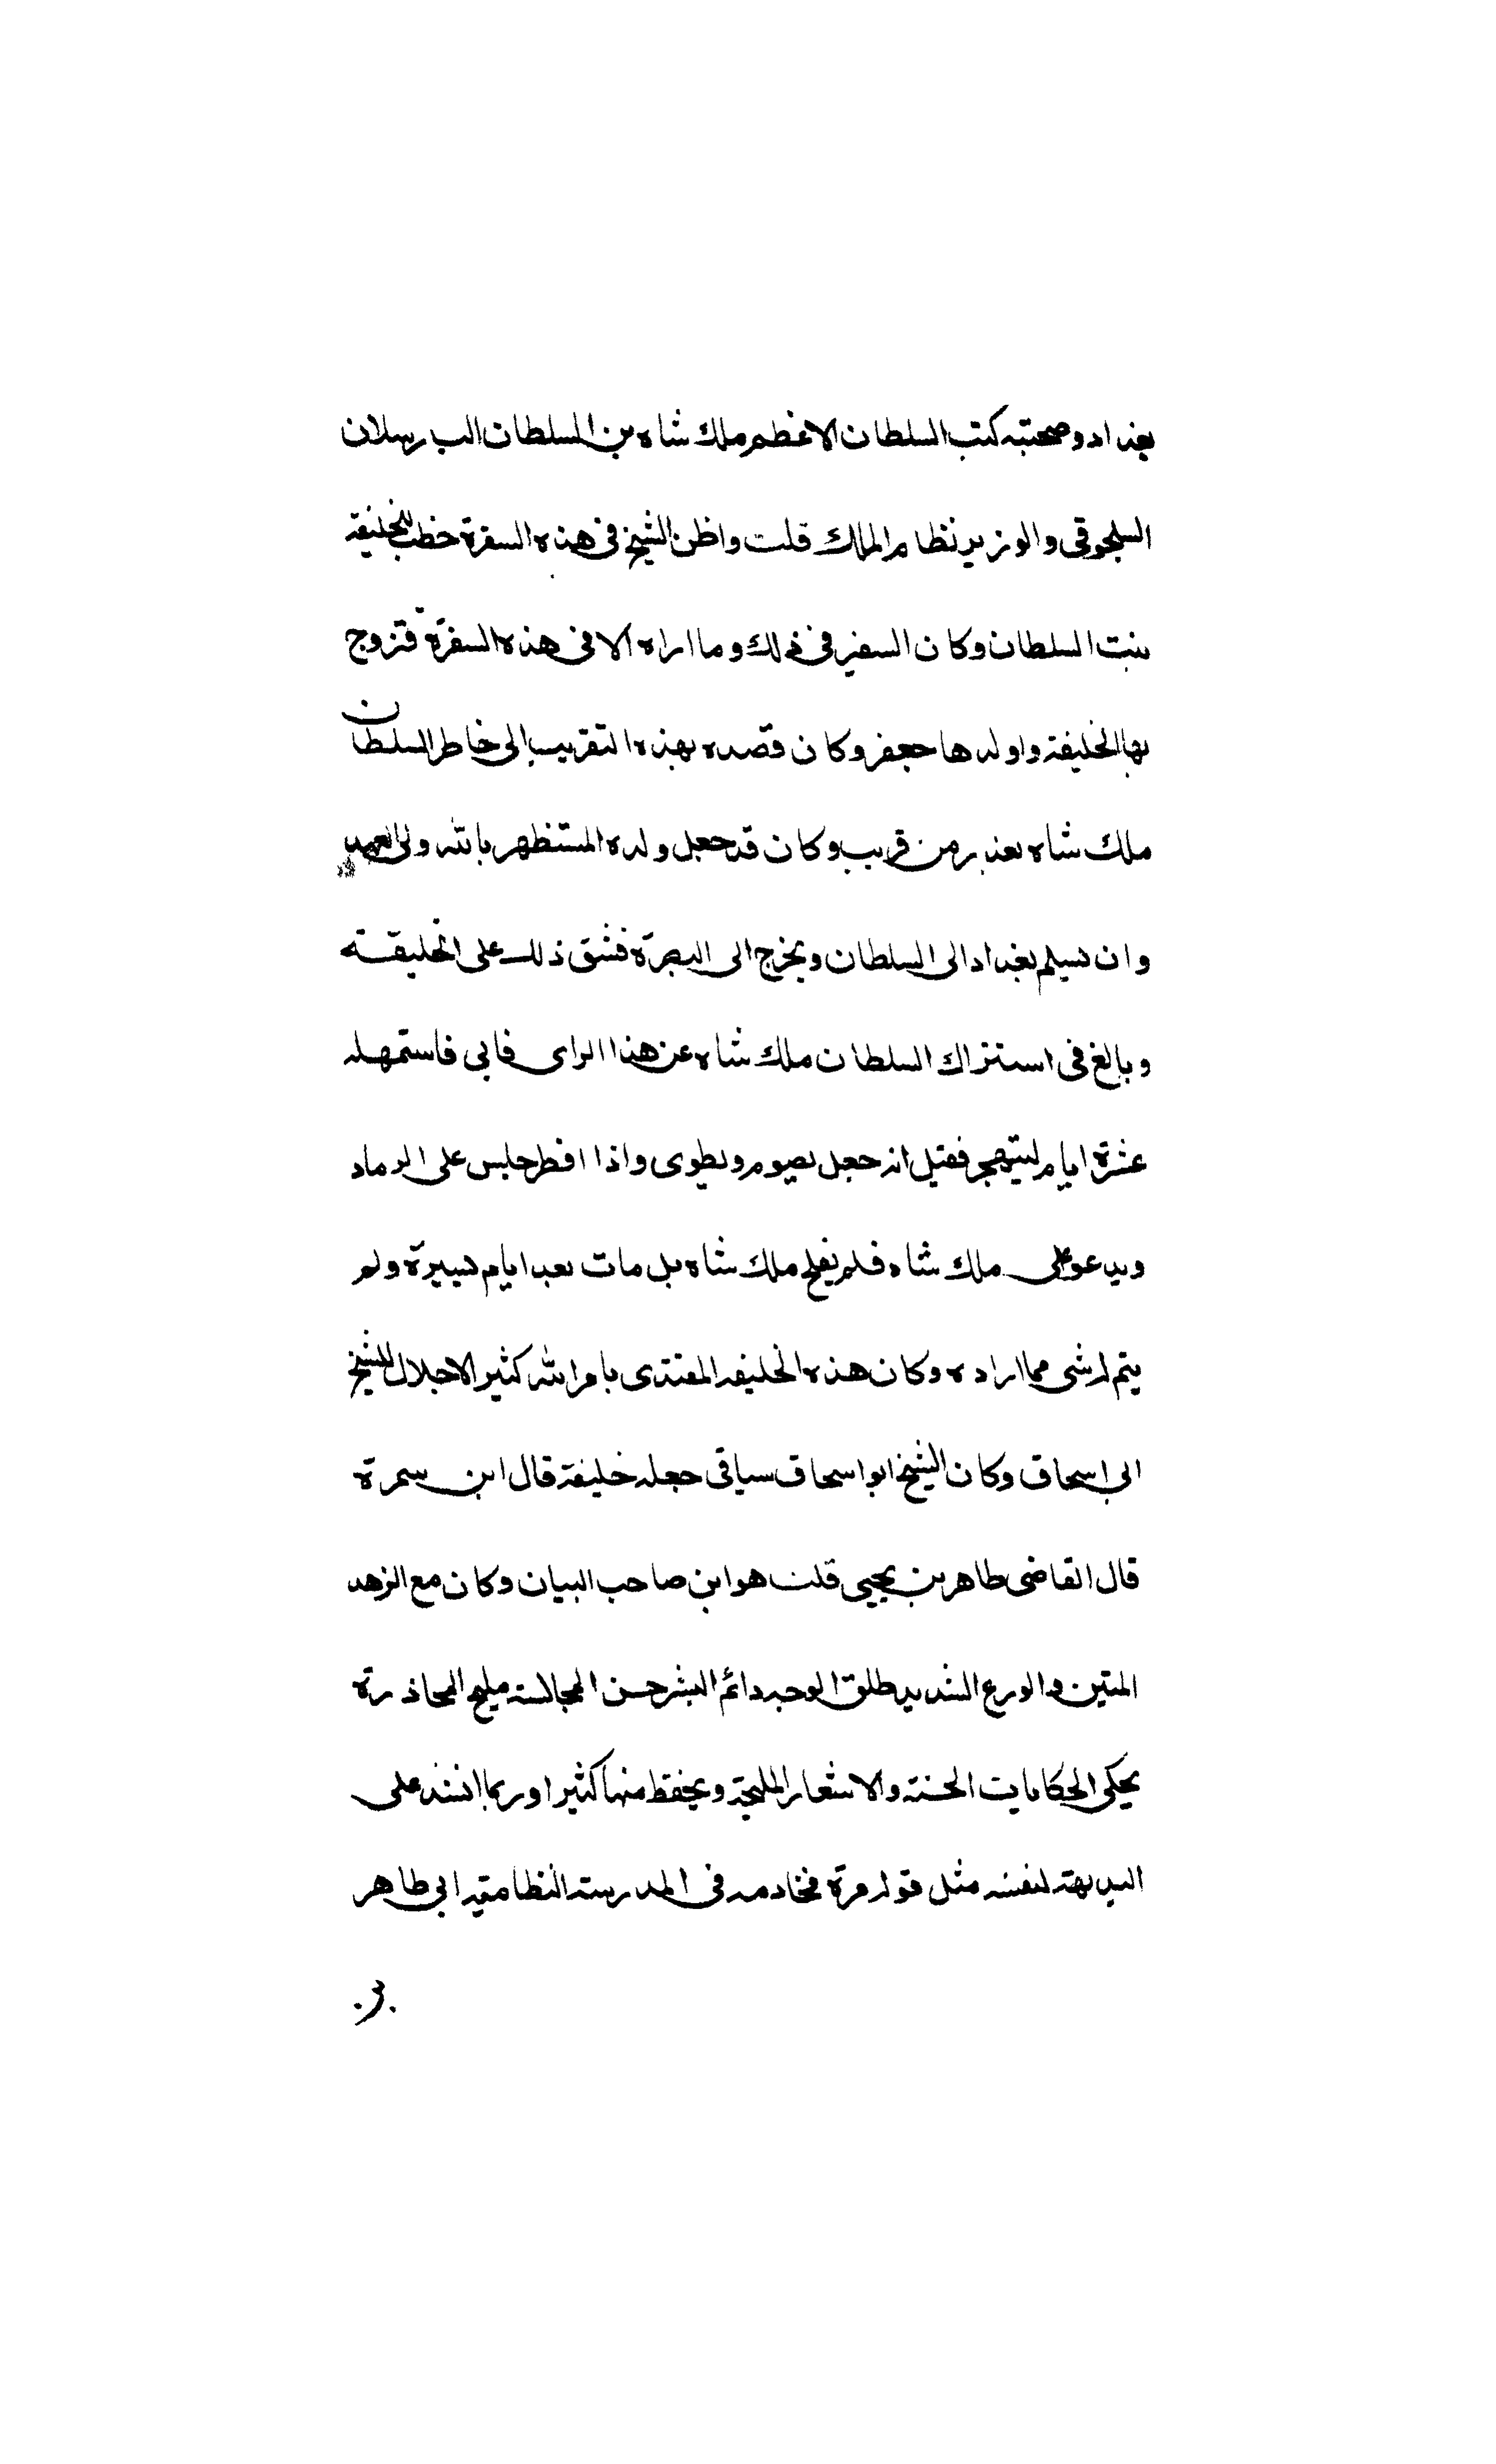 بغداد وصحبته كتب السلطان الاعظم ملك شاه بن السلطان الب رسلان
السلجوقى والوزير نظام الملك قلت واظن الشيخ فى هذه السفرة خطب للخليفة
بنت السلطان وكان السفير فى ذلك وما اراه الا فى هذه السفرة فتزوج
بها الخليفة واولدها جعفر وكان قصده بهذه التقريب الى خاطر السلطان
ملك شاه بعذر من قريب وكان قد جعل ولده المستظهر بالله ولى العهد
وان يسلم بغداد الى السلطان ويخرج الى البصرة فشق ذلك على الخليفة
وبالغ فى استنزاك السلطان ملك شاه عن هذا الراى فابى فاستمهله
عشرة ايام ليتجهز فقيل انه جعل يصوم ويطوى واذا افطر جلس على الرماد
ويدعو على ملك شاه فلم يفلح ملك شاه بل مات بعد ايام يسيرة ولم
يتم له شى مما اراده وكان هذه الخليفه المقتدى بامر الله كثير الاجلال للشيخ
ابى اسحاق وكان الشيخ ابو اسحاق سياقى جعله خليفة قال ابن سمرة
قال القاضى طاهر بن يحيى قلت هو ابن صاحب البيان وكان مع الزهد
المتين والورع الشديد طلق الوجه دائم البشر حسن المجالسة مليح المحاذرة
يحكى الحكايات الحسنة والاشعار المليحة ويحفظ منها كثيرا وربما انشد على
البديهة لنفسه مثل قوله مرة لخادمه فى المدرسة النظامية ابى طاهر